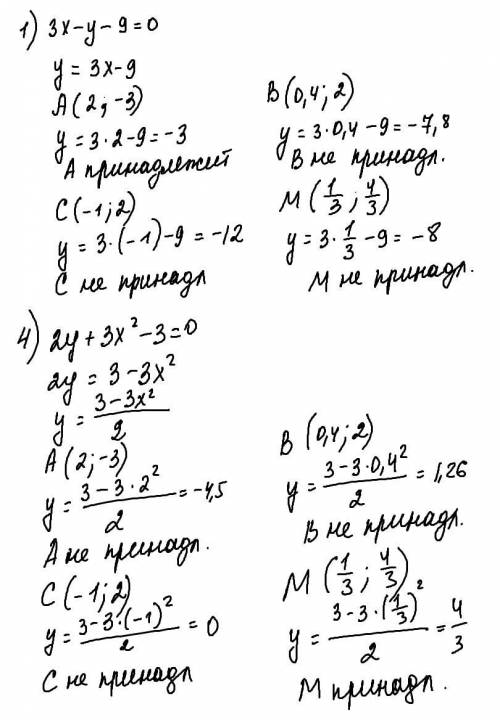 1) 3x-y-9=0
y = 3x-9
A(2;-3)
y = 3·2-9=-3
A принадлежит
B(0,4;2)
y=3·0,4-9=-7,8
B не принадл.
C(-1;2)
y = 3·(-1)-9 = -12
C не принадл
M(1/3; 4/3)
y=3·1/3-9=-8
M не принадл.
4) 2y+3x²-3=0
2y = 3-3x²
y = (3-3x²)/2
A(2;-3)
y = (3-3·2²)/2 = -4,5
A не принадл.
B (0,4;2)
y = (3-3·0,4²)/2 = 1,26
B не принадл.
C(-1;2)
y = (3-3·(-1)²)/2 = 0
C не принадл
M (1/3; 4/3)
y = (3-3·(1/3)²)/2 = 4/3
M принадл.